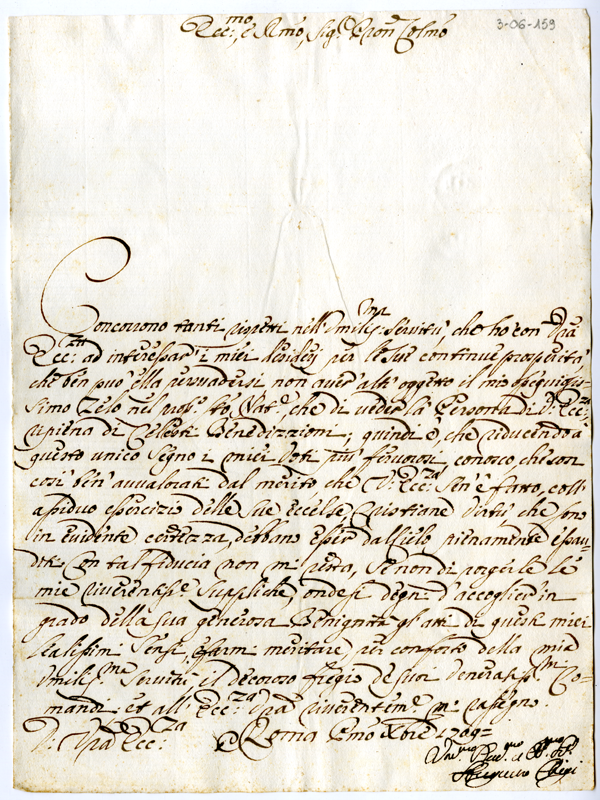 Ecc:mo, e Rmo, Sigr. Pron Colmo
3-06-159
Concorrono tanti rispetti nell'Umiliss:ma Servitù, che ho con Vra
Ecc:za ad interessar' i miei desiderj per le sue continue prosperità,
che ben può ella persuadersi non aver' altr' oggetto il mio ossequiosis-
simo Zelo nel pros:o Sto Nat.e, che di veder la Persona di V: Ecc:za
ripiena di Celesti Benedizzioni; quindi è, che riducendo a
questo unico segno i miei Voti più fervorosi, conosco, che son
così ben' avvalorati dal merito che V: Ecc:za sen' è fatto, coll'
assiduo esercizio delle sue eccelse Cristiane Virtù, che sono
in evidente certezza, debbano esser dal Cielo pienamente esau-
diti. Con tal fiducia non mi resta, se non di porgerle le
mie riverentiss:e Suppliche, onde si degni d'accoglier' in
grado della sua generosa Benignità gl'atti di questi miei
Lealissimi Sensi, e farmi meritare per conforto della mia
Umiliss:ma Servitù il decoroso fregio de suoi Veneratiss:mi Co-
mandi, et all' Ecc:za Vra riverentem:e mi rassegno.
D: Vra Ecc:za
Roma Pmo Xbre 1709=